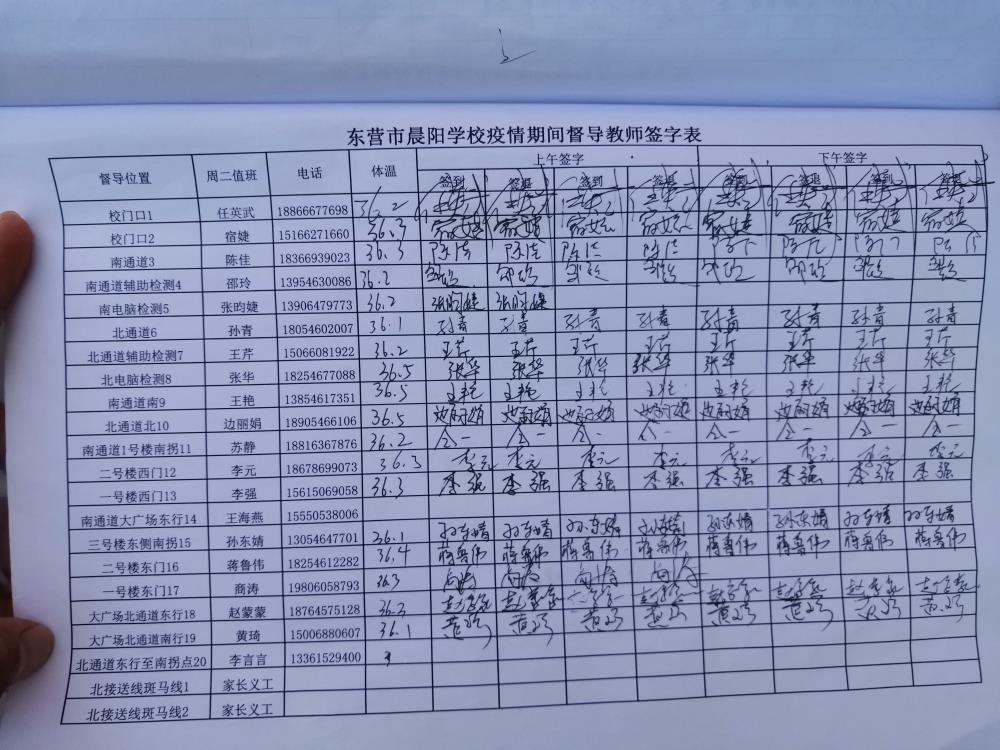 东营市晨阳学校疫情期间督导教师签字表
督导位置 周二值班 电话 体温 上午签字 下午签字
签到 签退 签到 签退 签到 签退 签到 签退
校门口1 任英武 18866677698 36.2
校门口2 宿婕 15166271660 36.3 宿婕 宿婕 宿婕 宿婕 宿婕 宿婕 宿婕 宿婕
南通道3 陈佳 18366939023 36.3 陈佳 陈佳 陈佳 陈佳
南通道辅助检测4 邵玲 13954630086 36.2 邵玲 邵玲 邵玲 邵玲 邵玲 邵玲 邵玲 邵玲
南电脑检测5 张昀婕 13906479773 36.2 张昀婕 张昀婕
北通道6 孙青 18054602007 36.1 孙青 孙青 孙青 孙青 孙青 孙青 孙青 孙青
北通道辅助检测7 王芹 15066081922 36.2 王芹 王芹 王芹 王芹 王芹 王芹 王芹 王芹
北电脑检测8 张华 18254677088 36.5 张华 张华 张华 张华 张华 张华 张华 张华
南通道南9 王艳 13854617351 36.5 王艳 王艳 王艳 王艳 王艳 王艳 王艳 王艳
北通道北10 边丽娟 18905466106 36.5 边丽娟 边丽娟 边丽娟 边丽娟 边丽娟 边丽娟 边丽娟 边丽娟
南通道1号楼南拐11 苏静 18816367876 36.2
二号楼西门12 李元 18678699073 36.3 李元 李元 李元 李元 李元 李元 李元 李元
一号楼西门13 李强 15615069058 36.3 李强 李强 李强 李强 李强 李强 李强 李强
南通道大广场东行14 王海燕 15550538006
三号楼东侧南拐15 孙东婧 13054647701 36.1 孙东婧 孙东婧 孙东婧 孙东婧 孙东婧 孙东婧 孙东婧 孙东婧
二号楼东门16 蒋鲁伟 18254612282 36.4 蒋鲁伟 蒋鲁伟 蒋鲁伟 蒋鲁伟 蒋鲁伟 蒋鲁伟 蒋鲁伟 蒋鲁伟
一号楼东门17 商涛 19806058793 36.3 商涛 商涛 商涛 商涛
大广场北通道东行18 赵蒙蒙 18764575128 36.2 赵蒙蒙 赵蒙蒙 赵蒙蒙 赵蒙蒙 赵蒙蒙 赵蒙蒙 赵蒙蒙 赵蒙蒙
大广场北通道南行19 黄琦 15006880607 36.1 黄琦 黄琦 黄琦 黄琦 黄琦 黄琦 黄琦 黄琦
北通道东行至南拐点20 李言言 13361529400
北接送线斑马线1 家长义工
北接送线斑马线2 家长义工